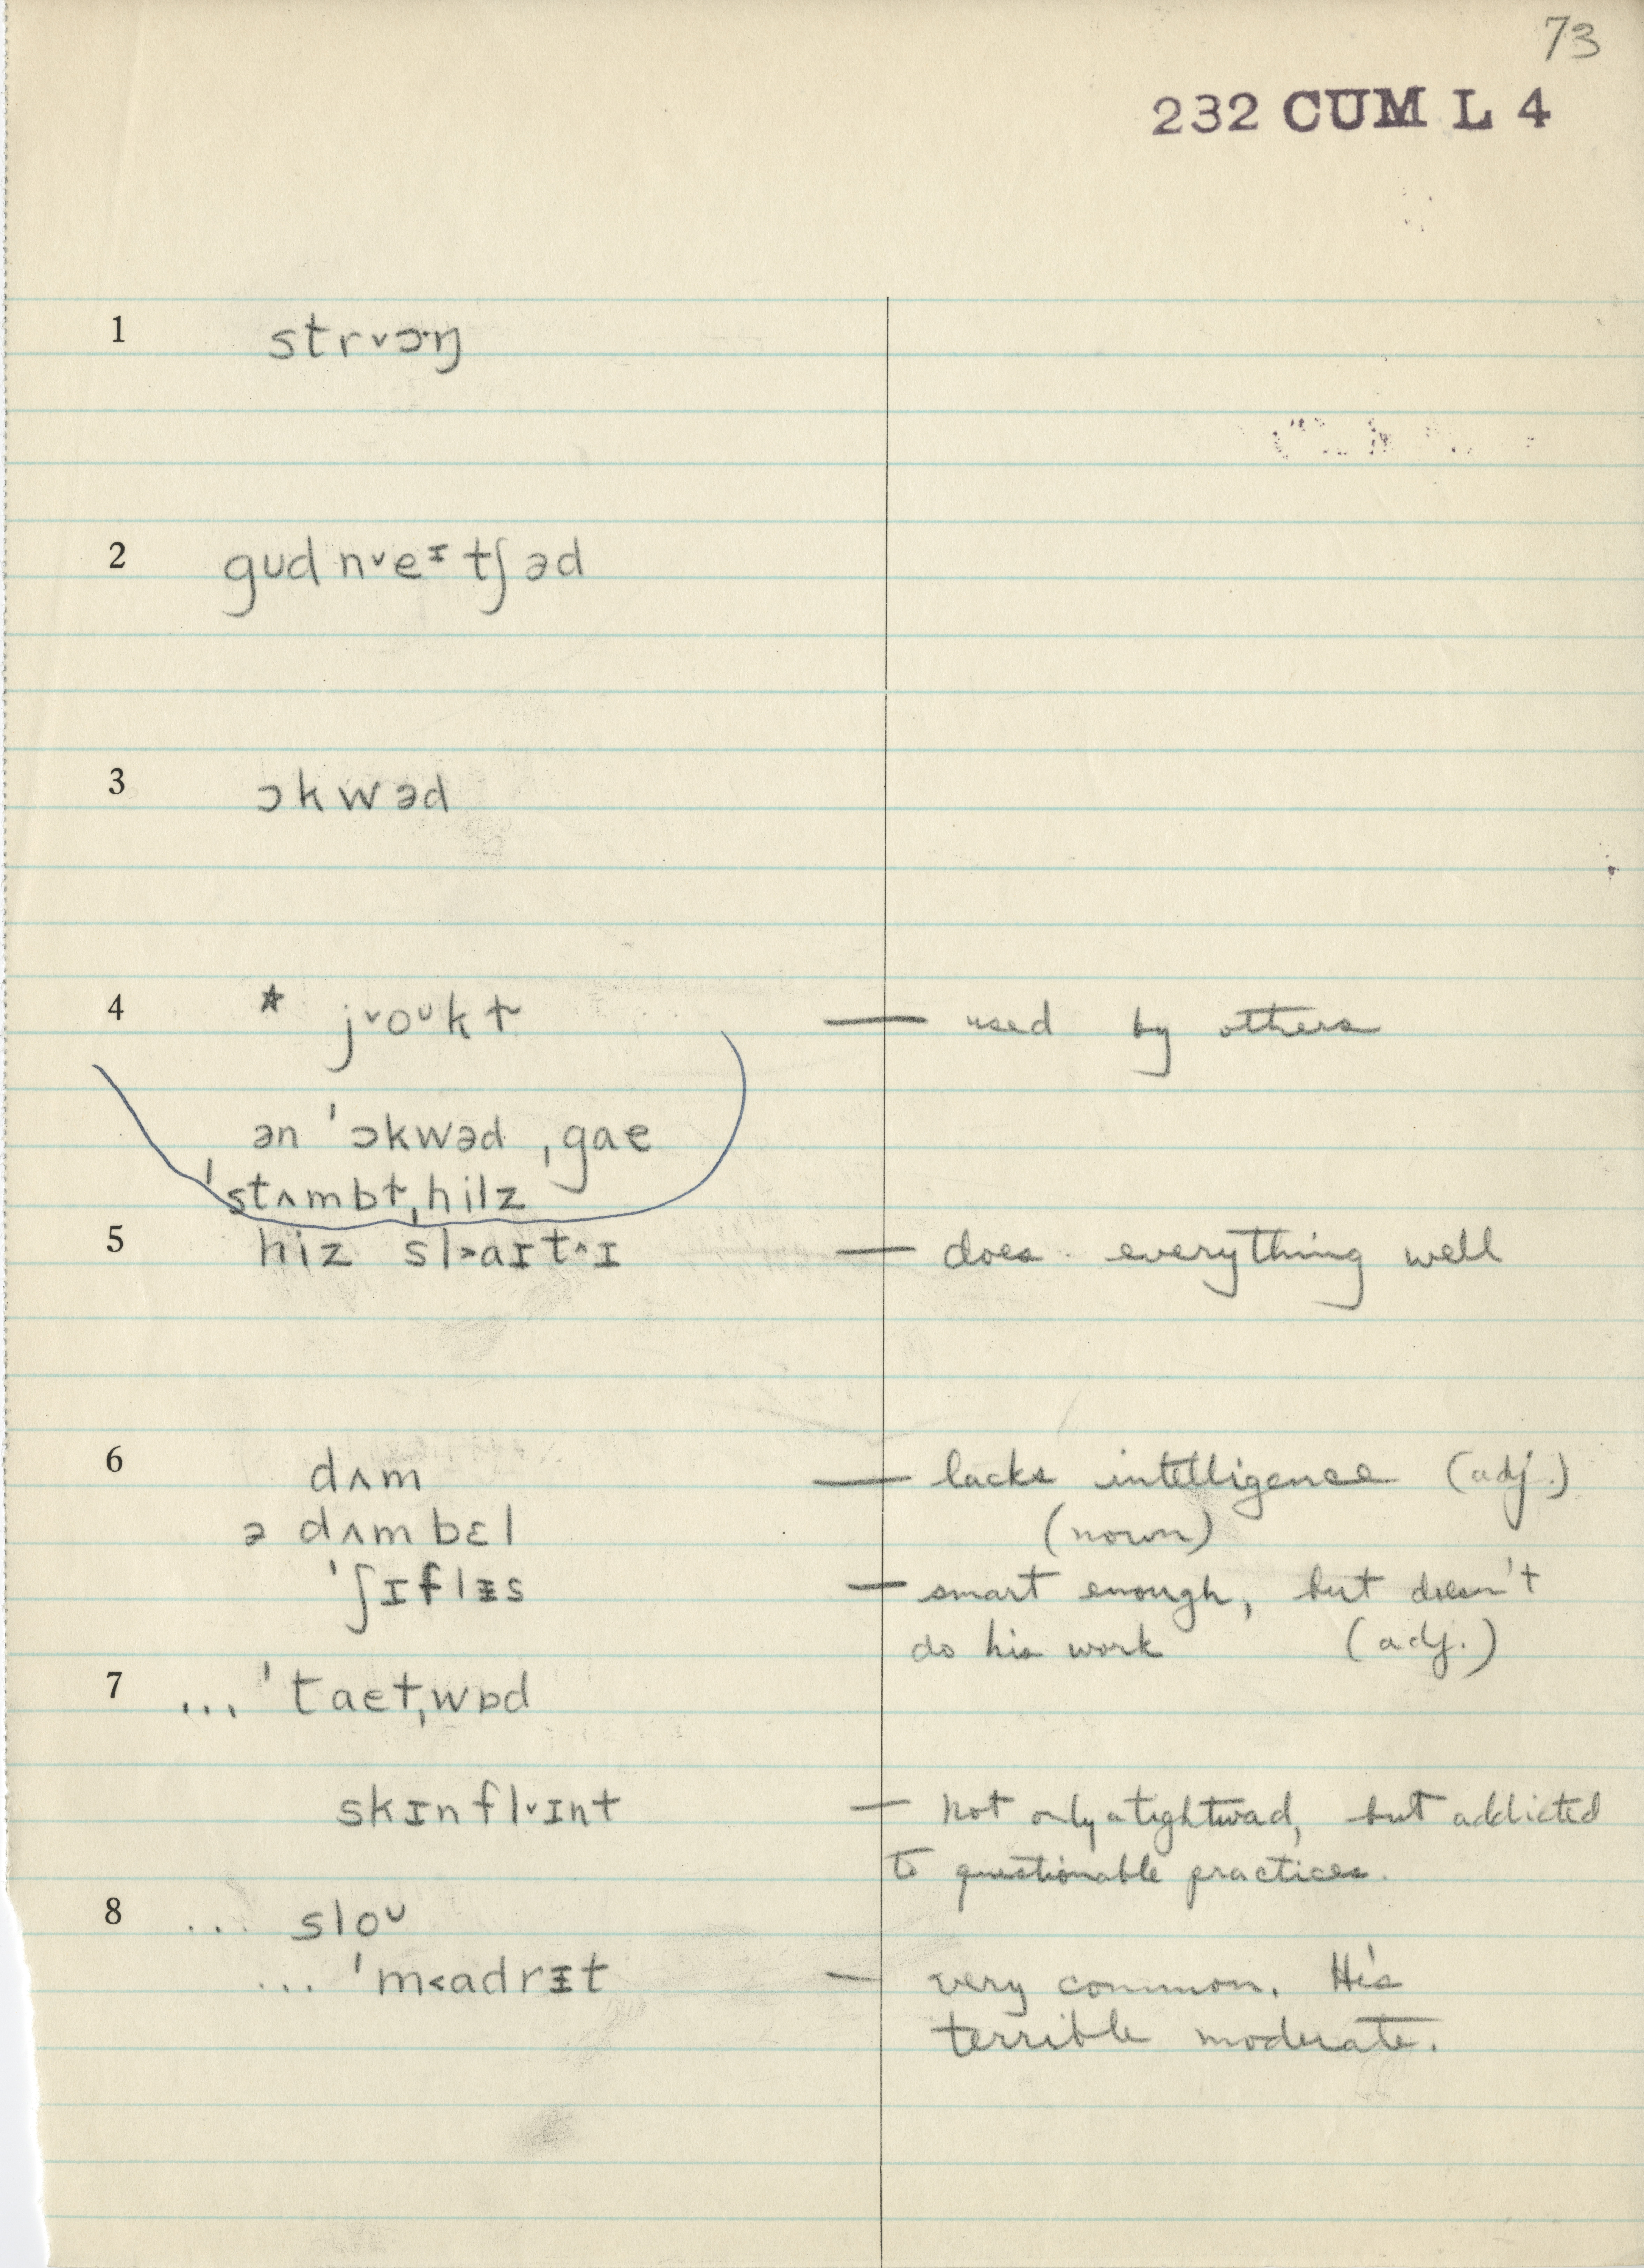 73
232 CUM L 4
1 strᵛɔ·ŋ
2 gud nᵛeᶦtʃəd
3 ɔkwəd
4 * jᵛoᵘkt — used by others
ən ˈɔkwəd ˌgae
ˈstʌmbt ˌhilz
5 hiz sl˃aɪt^ɪ — does everything well
6 dʌm — lacks intelligence (adj.)
ə dʌmbɛl (noun)
ˈʃɪflɪs — smart enough, but doesn't
do his work (adj.)
7 ... ˈtaetˌwɒd
skɪnflᵛɪnt — not only a tightwad, but addicted
to questionable practices.
8 ... sloᵘ
... ˈm˂adrɪt — very common. He's
terrible moderate.